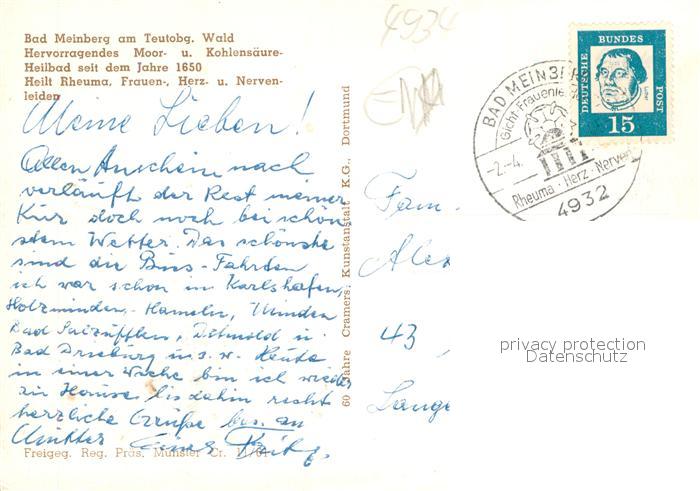 Bad Meinberg am Teutobg. Wald
Hervorragendes Moor- u. Kohlensäure-
Heilbad seit dem Jahre 1650
Heilt Rheuma, Frauen-, Herz- u. Nerven-
leiden
Meine Lieben!
Allen Anschein nach
verläuft der Rest meiner
Kur doch noch bei schön
stem Wetter. Das schönste
sind die Bus-Fahrten
ich war schon in Karlshafen,
Holzminden, Hameln, Minden
Bad Salzufflen, Detmold u.
Bad Driburg u.s.w. Heute
in einer Woche bin ich wieder
zu Hause bis dahin recht
herzliche Grüße bes. an
Mutter Euer Fritz.
Freigeg. Reg. Präs. Münster Cr. 11/61
60 Jahre Cramers Kunstanstalt K.G., Dortmund
4934
DEUTSCHE BUNDESPOST
15
BAD MEINBERG
Gicht Frauenle
-2.-4.
Rheuma · Herz · Nerven
4932
Fam.
Alex
43
Lange
privacy protection
Datenschutz